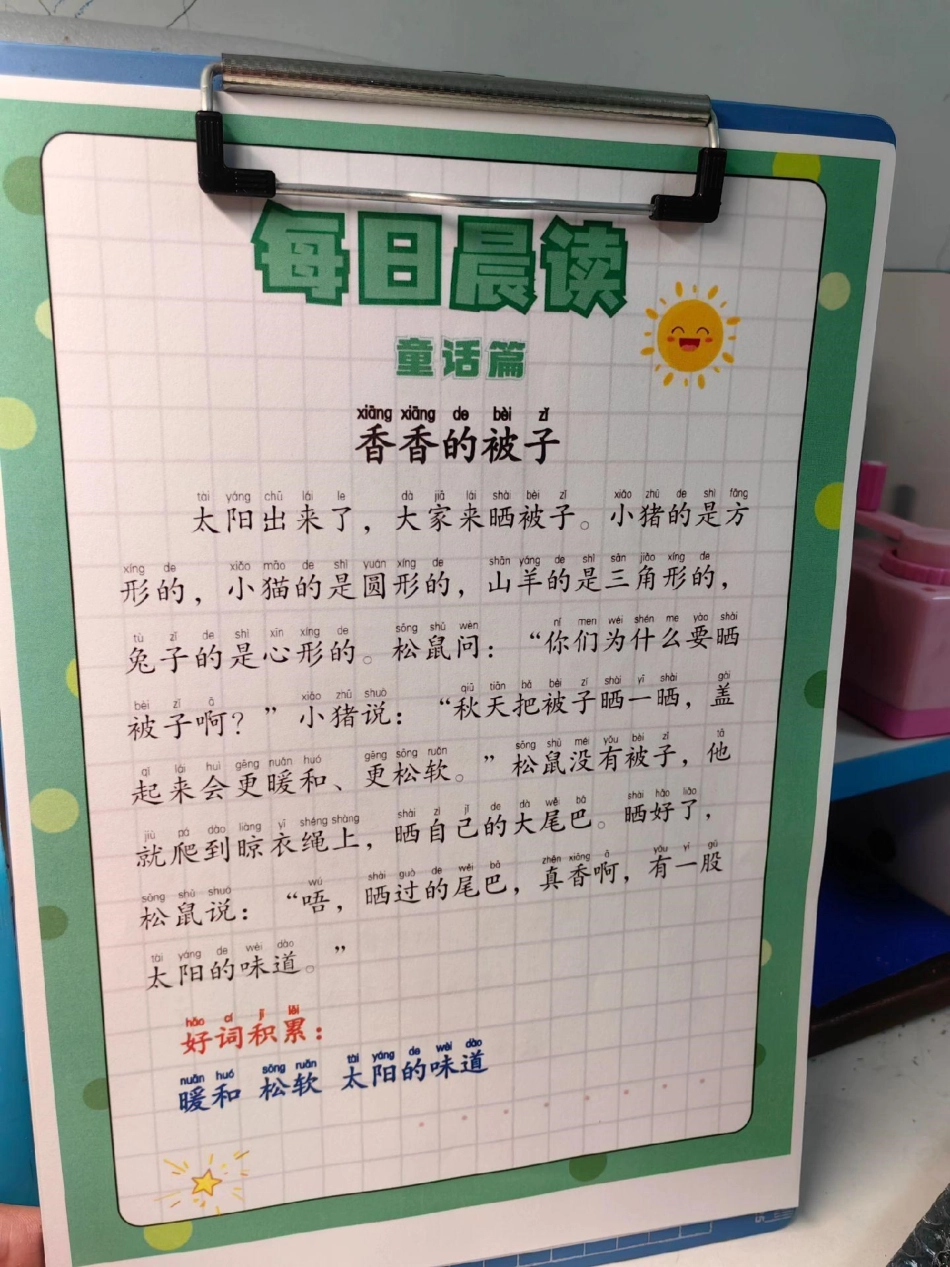 每日晨读
童话篇
xiāng xiāng de bèi zǐ
香香的被子
tài yáng chū lái le dà jiā lái shài bèi zǐ xiǎo zhū de shì fāng
太阳出来了，大家来晒被子。小猪的是方
xíng de xiǎo māo de shì yuán xíng de shān yáng de shì sān jiǎo xíng de
形的，小猫的是圆形的，山羊的是三角形的，
tù zǐ de shì xīn xíng de sōng shǔ wèn nǐ men wèi shén me yào shài
兔子的是心形的。松鼠问：“你们为什么要晒
bèi zǐ ā xiǎo zhū shuō qiū tiān bǎ bèi zǐ shài yī shài gài
被子啊？”小猪说：“秋天把被子晒一晒，盖
qǐ lái huì gèng nuǎn huó gèng sōng ruǎn sōng shǔ méi yǒu bèi zǐ tā
起来会更暖和、更松软。”松鼠没有被子，他
jiù pá dào liàng yī shéng shàng shài zì jǐ de dà wěi bā shài hǎo liǎo
就爬到晾衣绳上，晒自己的大尾巴。晒好了，
sōng shǔ shuō wú shài guò de wěi bā zhēn xiāng ā yǒu yī gǔ
松鼠说：“唔，晒过的尾巴，真香啊，有一股
tài yáng de wèi dào
太阳的味道。”
hǎo cí jī lěi
好词积累：
nuǎn huó sōng ruǎn tài yáng de wèi dào
暖和 松软 太阳的味道